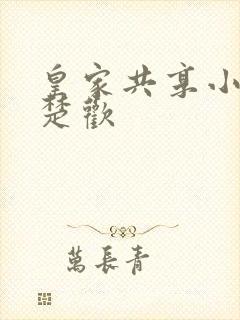 皇家共享小
楚歡
萬長青